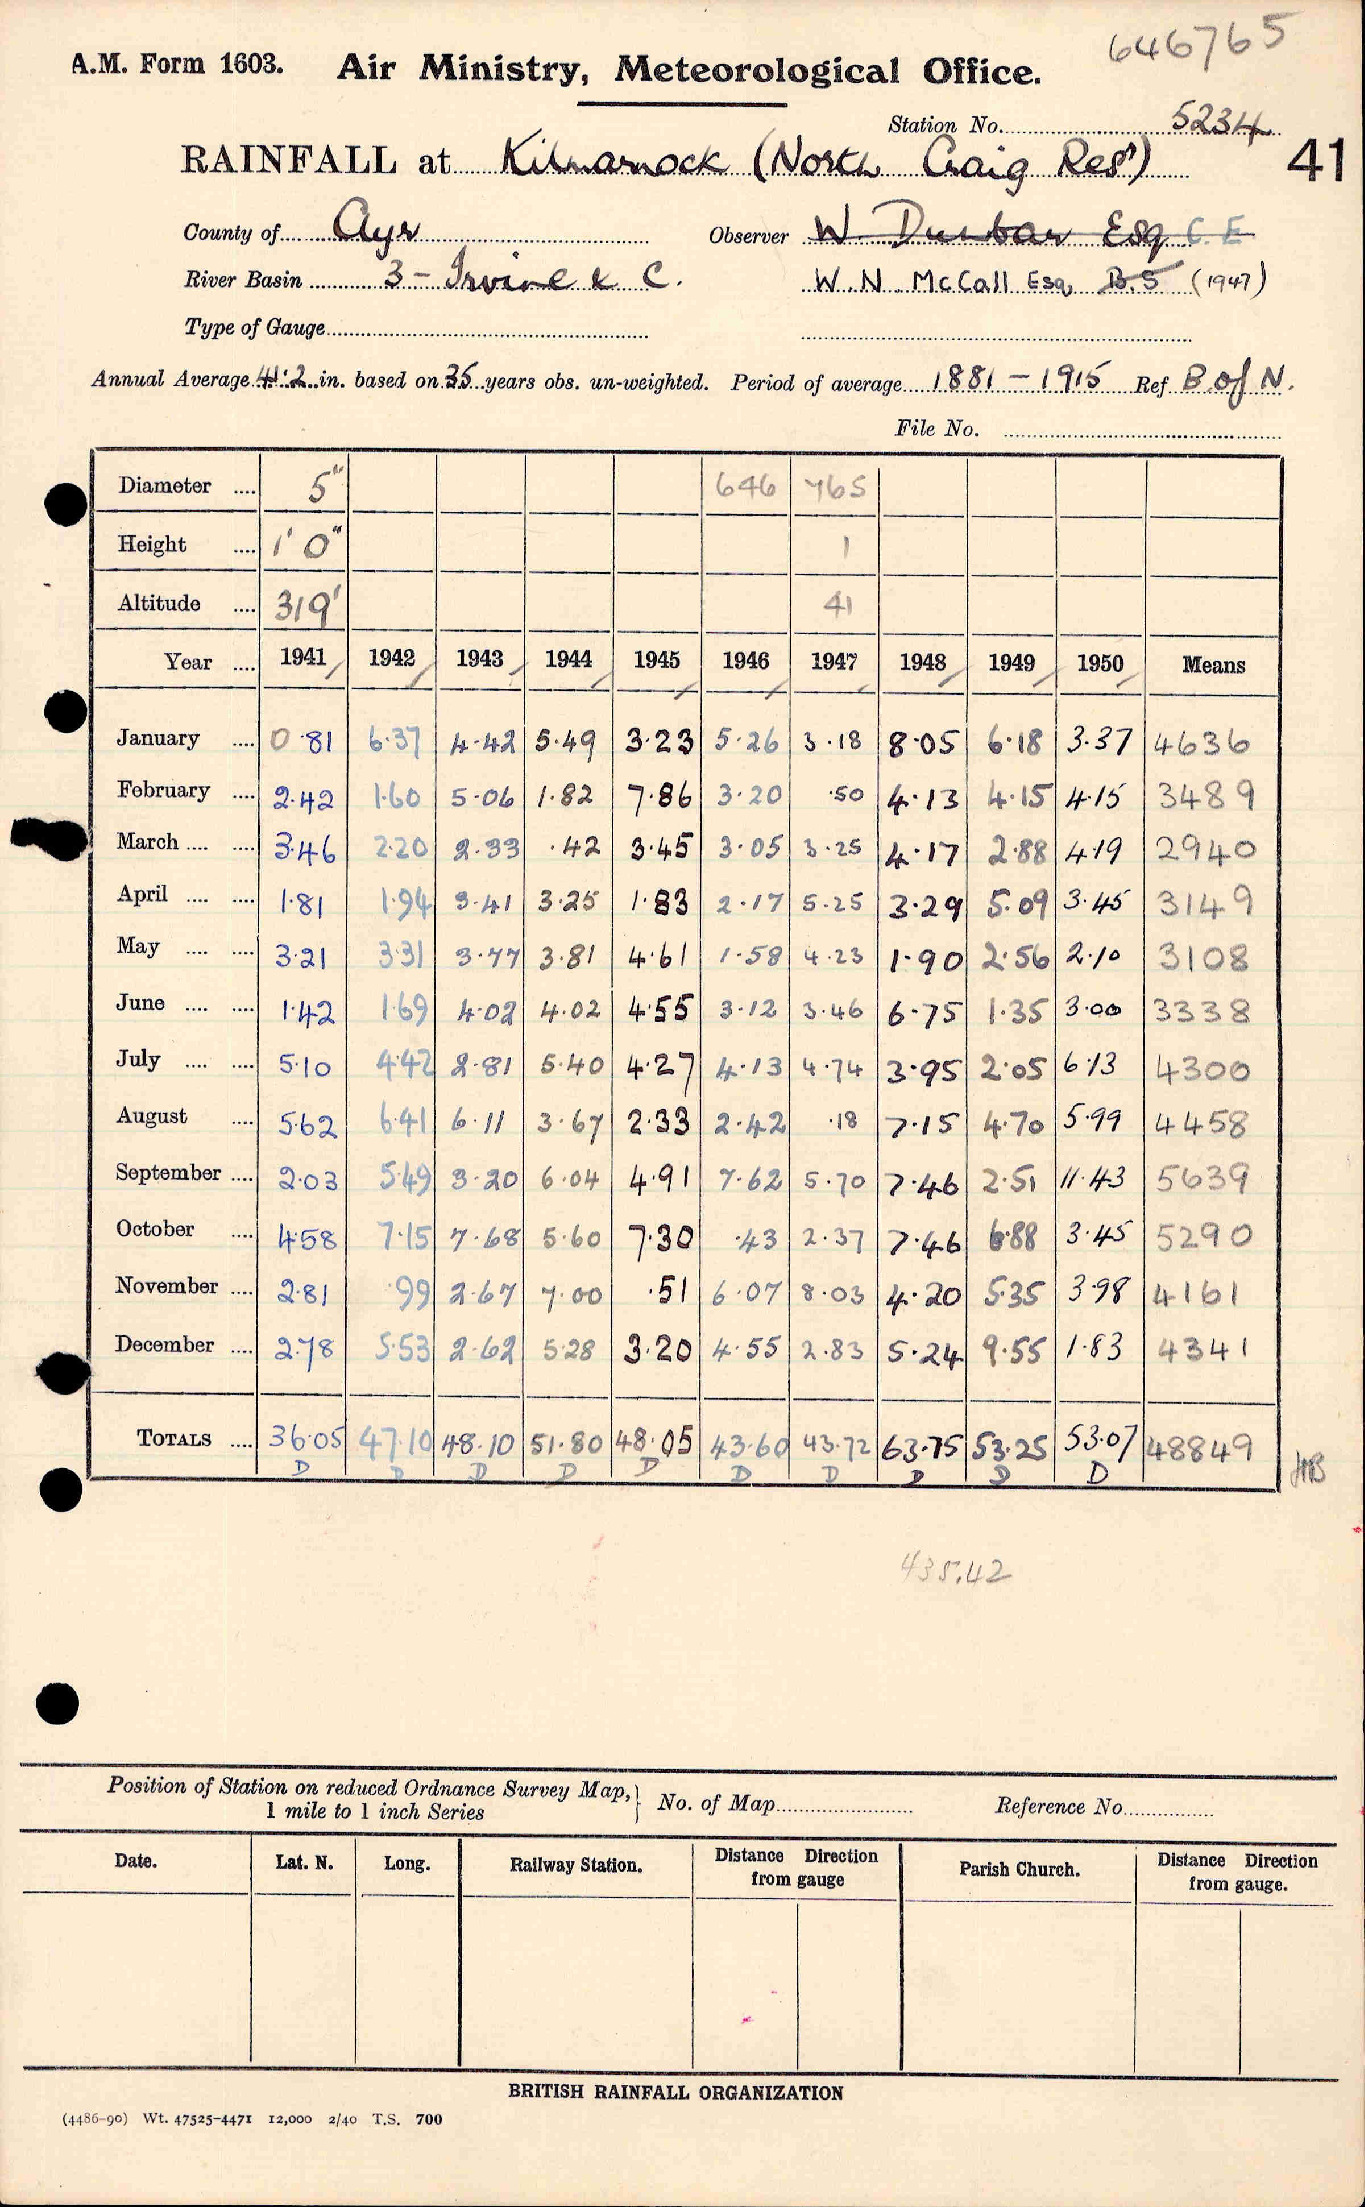 646765
A.M. Form 1603. Air Ministry, Meteorological Office.
Station No. 5234
RAINFALL at Kilmarnock (North Craig Resr) 41
County of Ayr Observer W. Dunbar Esq C.E
River Basin 3 - Irvine & C. W. N. McCall Esq, B.S (1947)
Type of Gauge
Annual Average 41.2 in. based on 35 years obs. un-weighted. Period of average 1881 - 1915 Ref B. of N.
File No.
Diameter .... 5" 646 765
Height .... 1' 0" 1
Altitude .... 319' 41
Year .... 1941 1942 1943 1944 1945 1946 1947 1948 1949 1950 Means
January .... 0.81 6.37 4.42 5.49 3.23 5.26 3.18 8.05 6.18 3.37 4636
February .... 2.42 1.60 5.06 1.82 7.86 3.20 .50 4.13 4.15 4.15 3489
March .... .... 3.46 2.20 2.33 .42 3.45 3.05 3.25 4.17 2.88 4.19 2940
April .... .... 1.81 1.94 3.41 3.25 1.83 2.17 5.25 3.29 5.09 3.45 3149
May .... .... 3.21 3.31 3.77 3.81 4.61 1.58 4.23 1.90 2.56 2.10 3108
June .... .... 1.42 1.69 4.02 4.02 4.55 3.12 3.46 6.75 1.35 3.00 3338
July .... .... 5.10 4.42 2.81 5.40 4.27 4.13 4.74 3.95 2.05 6.13 4300
August .... 5.62 6.41 6.11 3.67 2.33 2.42 .18 7.15 4.70 5.99 4458
September .... 2.03 5.49 3.20 6.04 4.91 7.62 5.70 7.46 2.51 11.43 5639
October .... 4.58 7.15 7.68 5.60 7.30 .43 2.37 7.46 6.88 3.45 5290
November .... 2.81 .99 2.67 7.00 .51 6.07 8.03 4.20 5.35 3.98 4161
December .... 2.78 5.53 2.62 5.28 3.20 4.55 2.83 5.24 9.55 1.83 4341
TOTALS .... 36.05 47.10 48.10 51.80 48.05 43.60 43.72 63.75 53.25 53.07 48849
D D D D D D D D D D
435.42
Position of Station on reduced Ordnance Survey Map, 1 mile to 1 inch Series } No. of Map Reference No.
Date. Lat. N. Long. Railway Station. Distance Direction from gauge Parish Church. Distance Direction from gauge.
BRITISH RAINFALL ORGANIZATION
(4486-90) Wt. 47525-4471 12,000 2/40 T.S. 700